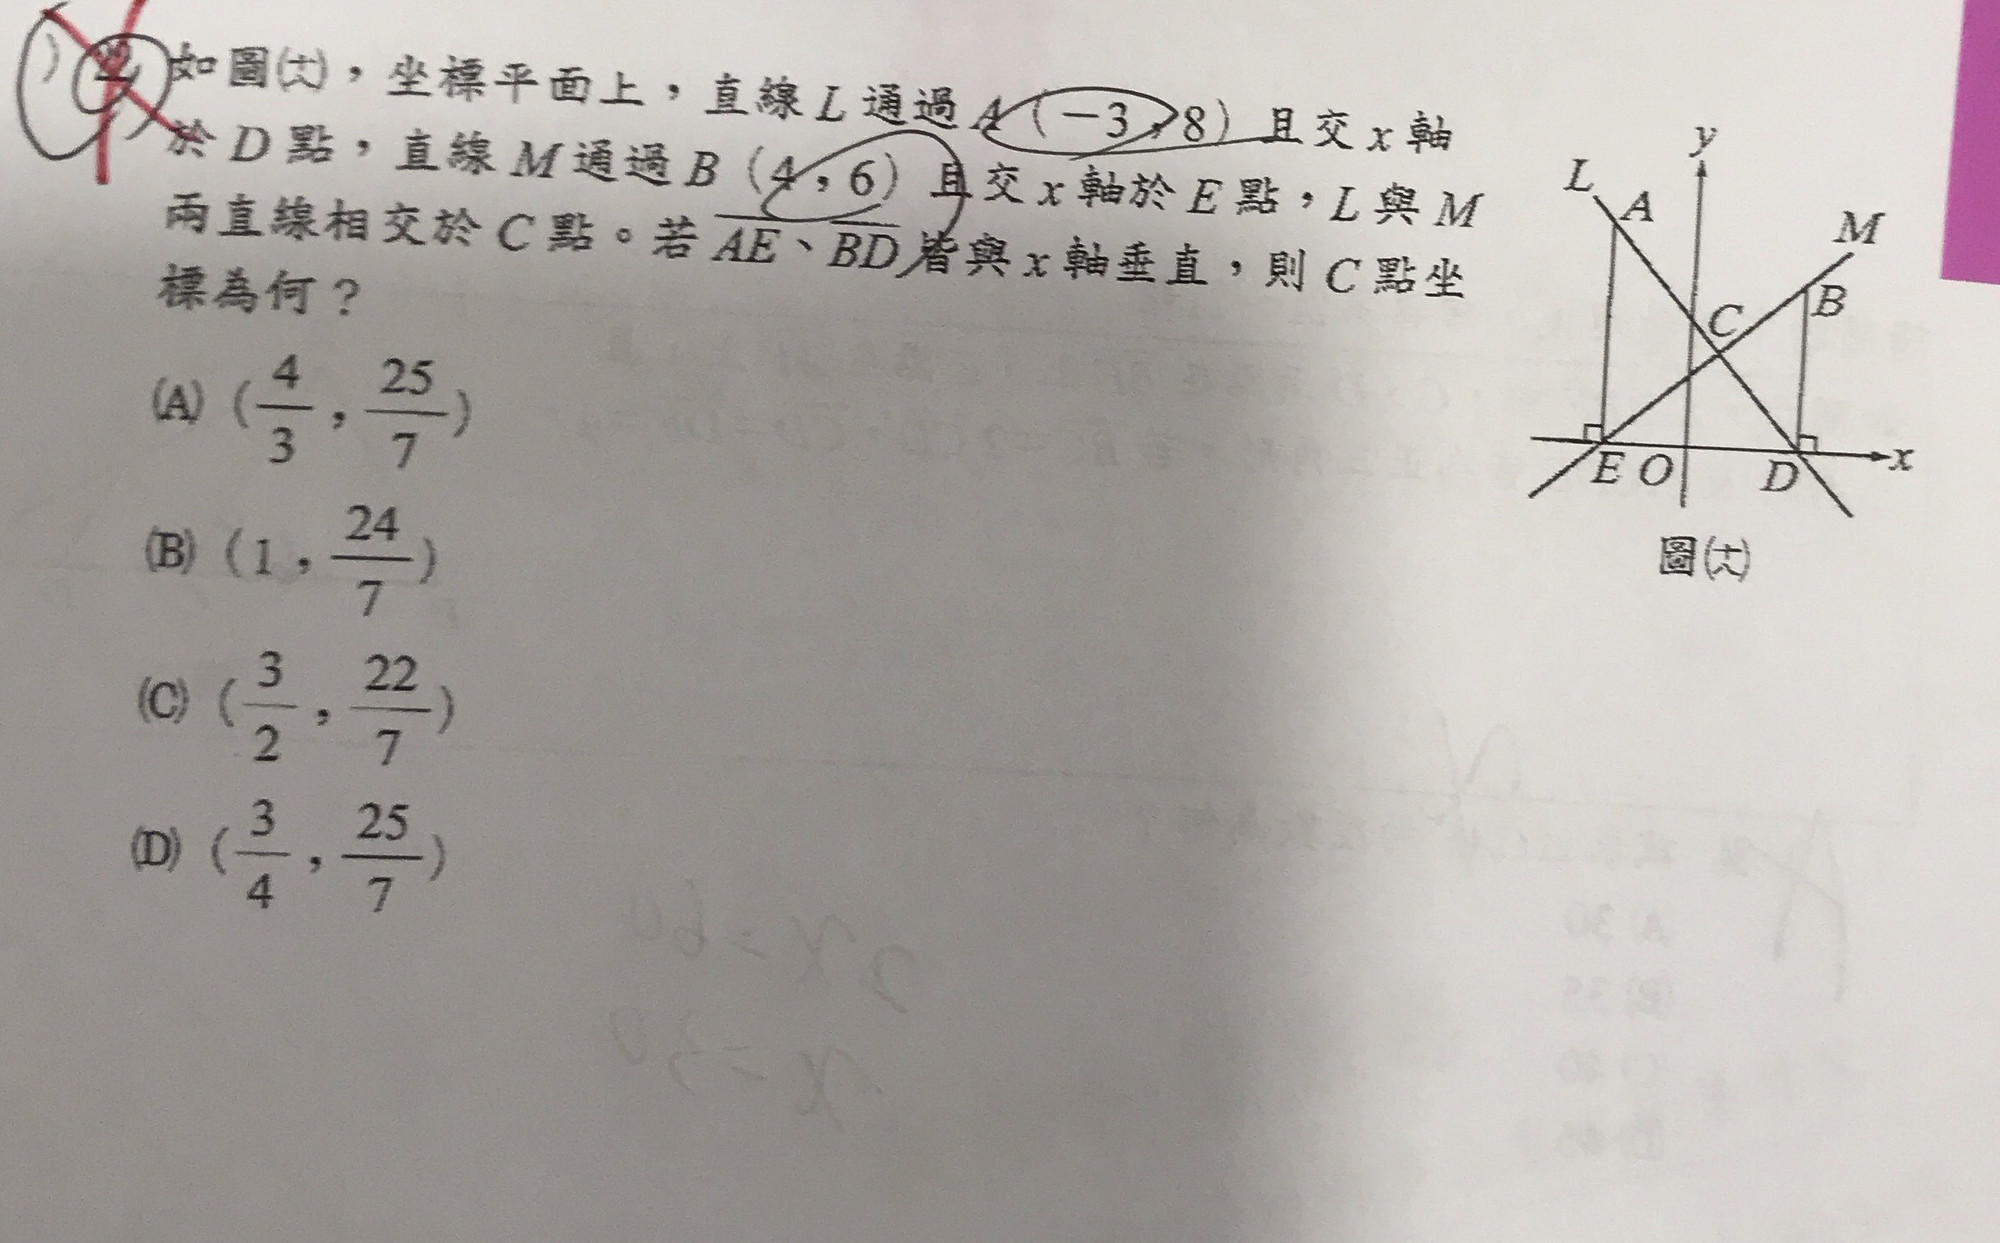 如圖(十六)，坐標平面上，直線L通過A（－3，8）且交x軸
於D點，直線M通過B（4，6）且交x軸於E點，L與M
兩直線相交於C點。若AE、BD皆與x軸垂直，則C點坐
標為何？
(A)（4/3，25/7）
(B)（1，24/7）
(C)（3/2，22/7）
(D)（3/4，25/7）
y
L
A
M
C
B
E O D x